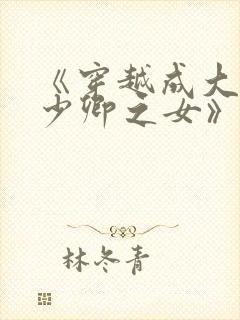 《穿越成大
少卿之女》
林冬青